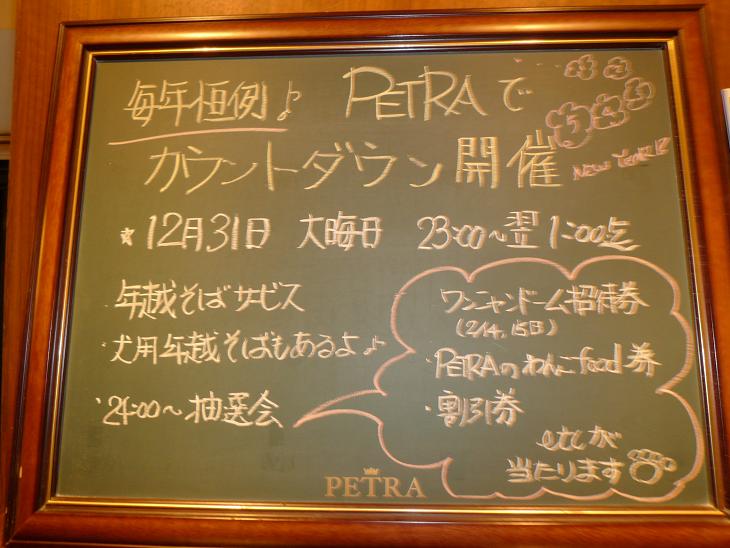 毎年恒例♪ PETRAで
カウントダウン開催
5 4 3 2 1
NEW YEAR!!
☆12月31日 大晦日 23:00〜翌1:00迄
・年越そばサービス
・犬用年越そばもあるよ♪
・24:00〜抽選会
ワンニャンドーム招待券
(2/14.15日)
・PETRAのわんこfood券
・割引券
etcが
当たります
PETRA